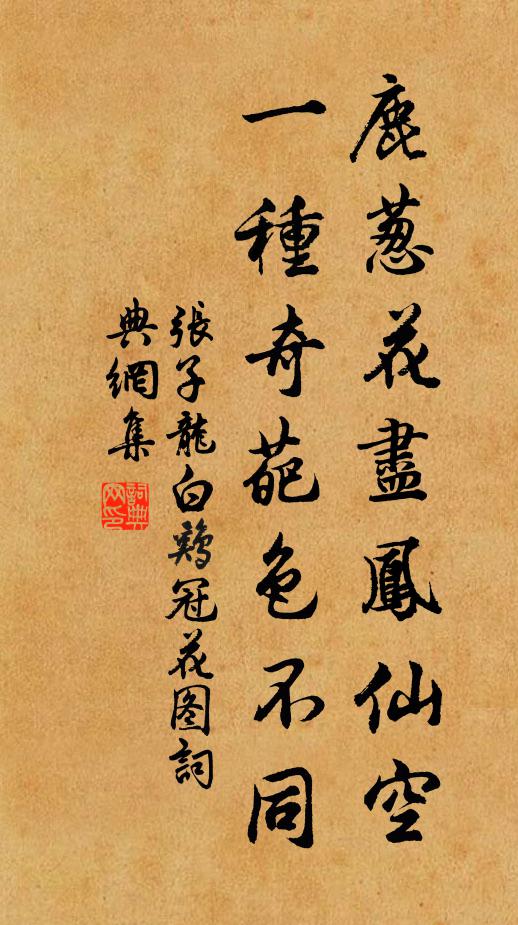 鹿葱花盡鳳仙空
一種奇葩色不同
張子龍白鷄冠花图詞
典網集
詞典
网印